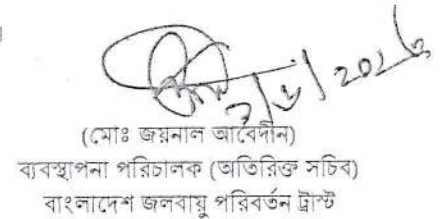 (মোঃ জয়নাল আবেদীন)
ব্যবস্থাপনা পরিচালক (অতিরিক্ত সচিব)
বাংলাদেশ জলবায়ু পরিবর্তন ট্রাস্ট